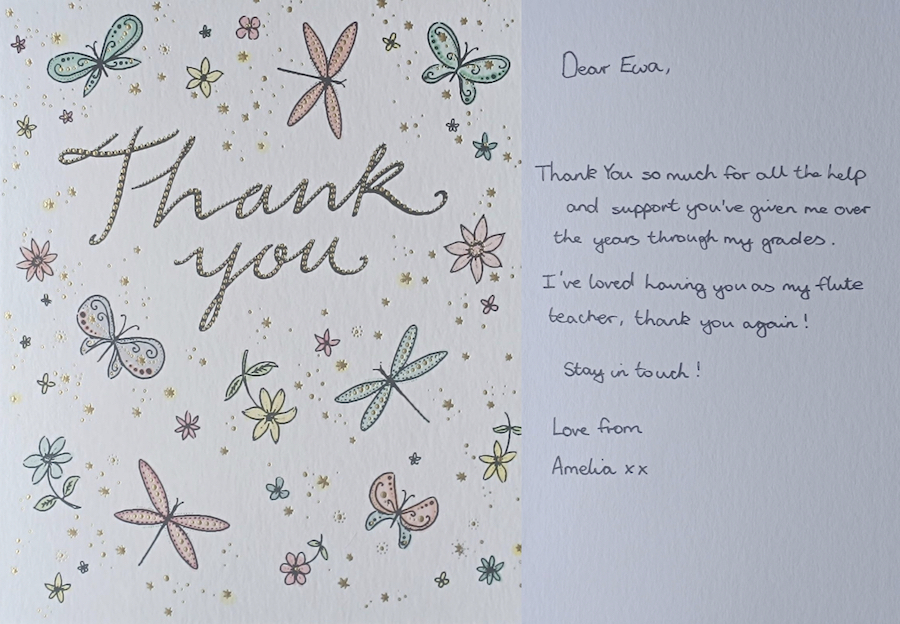 Thank
you
Dear Ewa,
Thank You so much for all the help
and support you've given me over
the years through my grades.
I've loved having you as my flute
teacher, thank you again!
Stay in touch!
Love from
Amelia xx